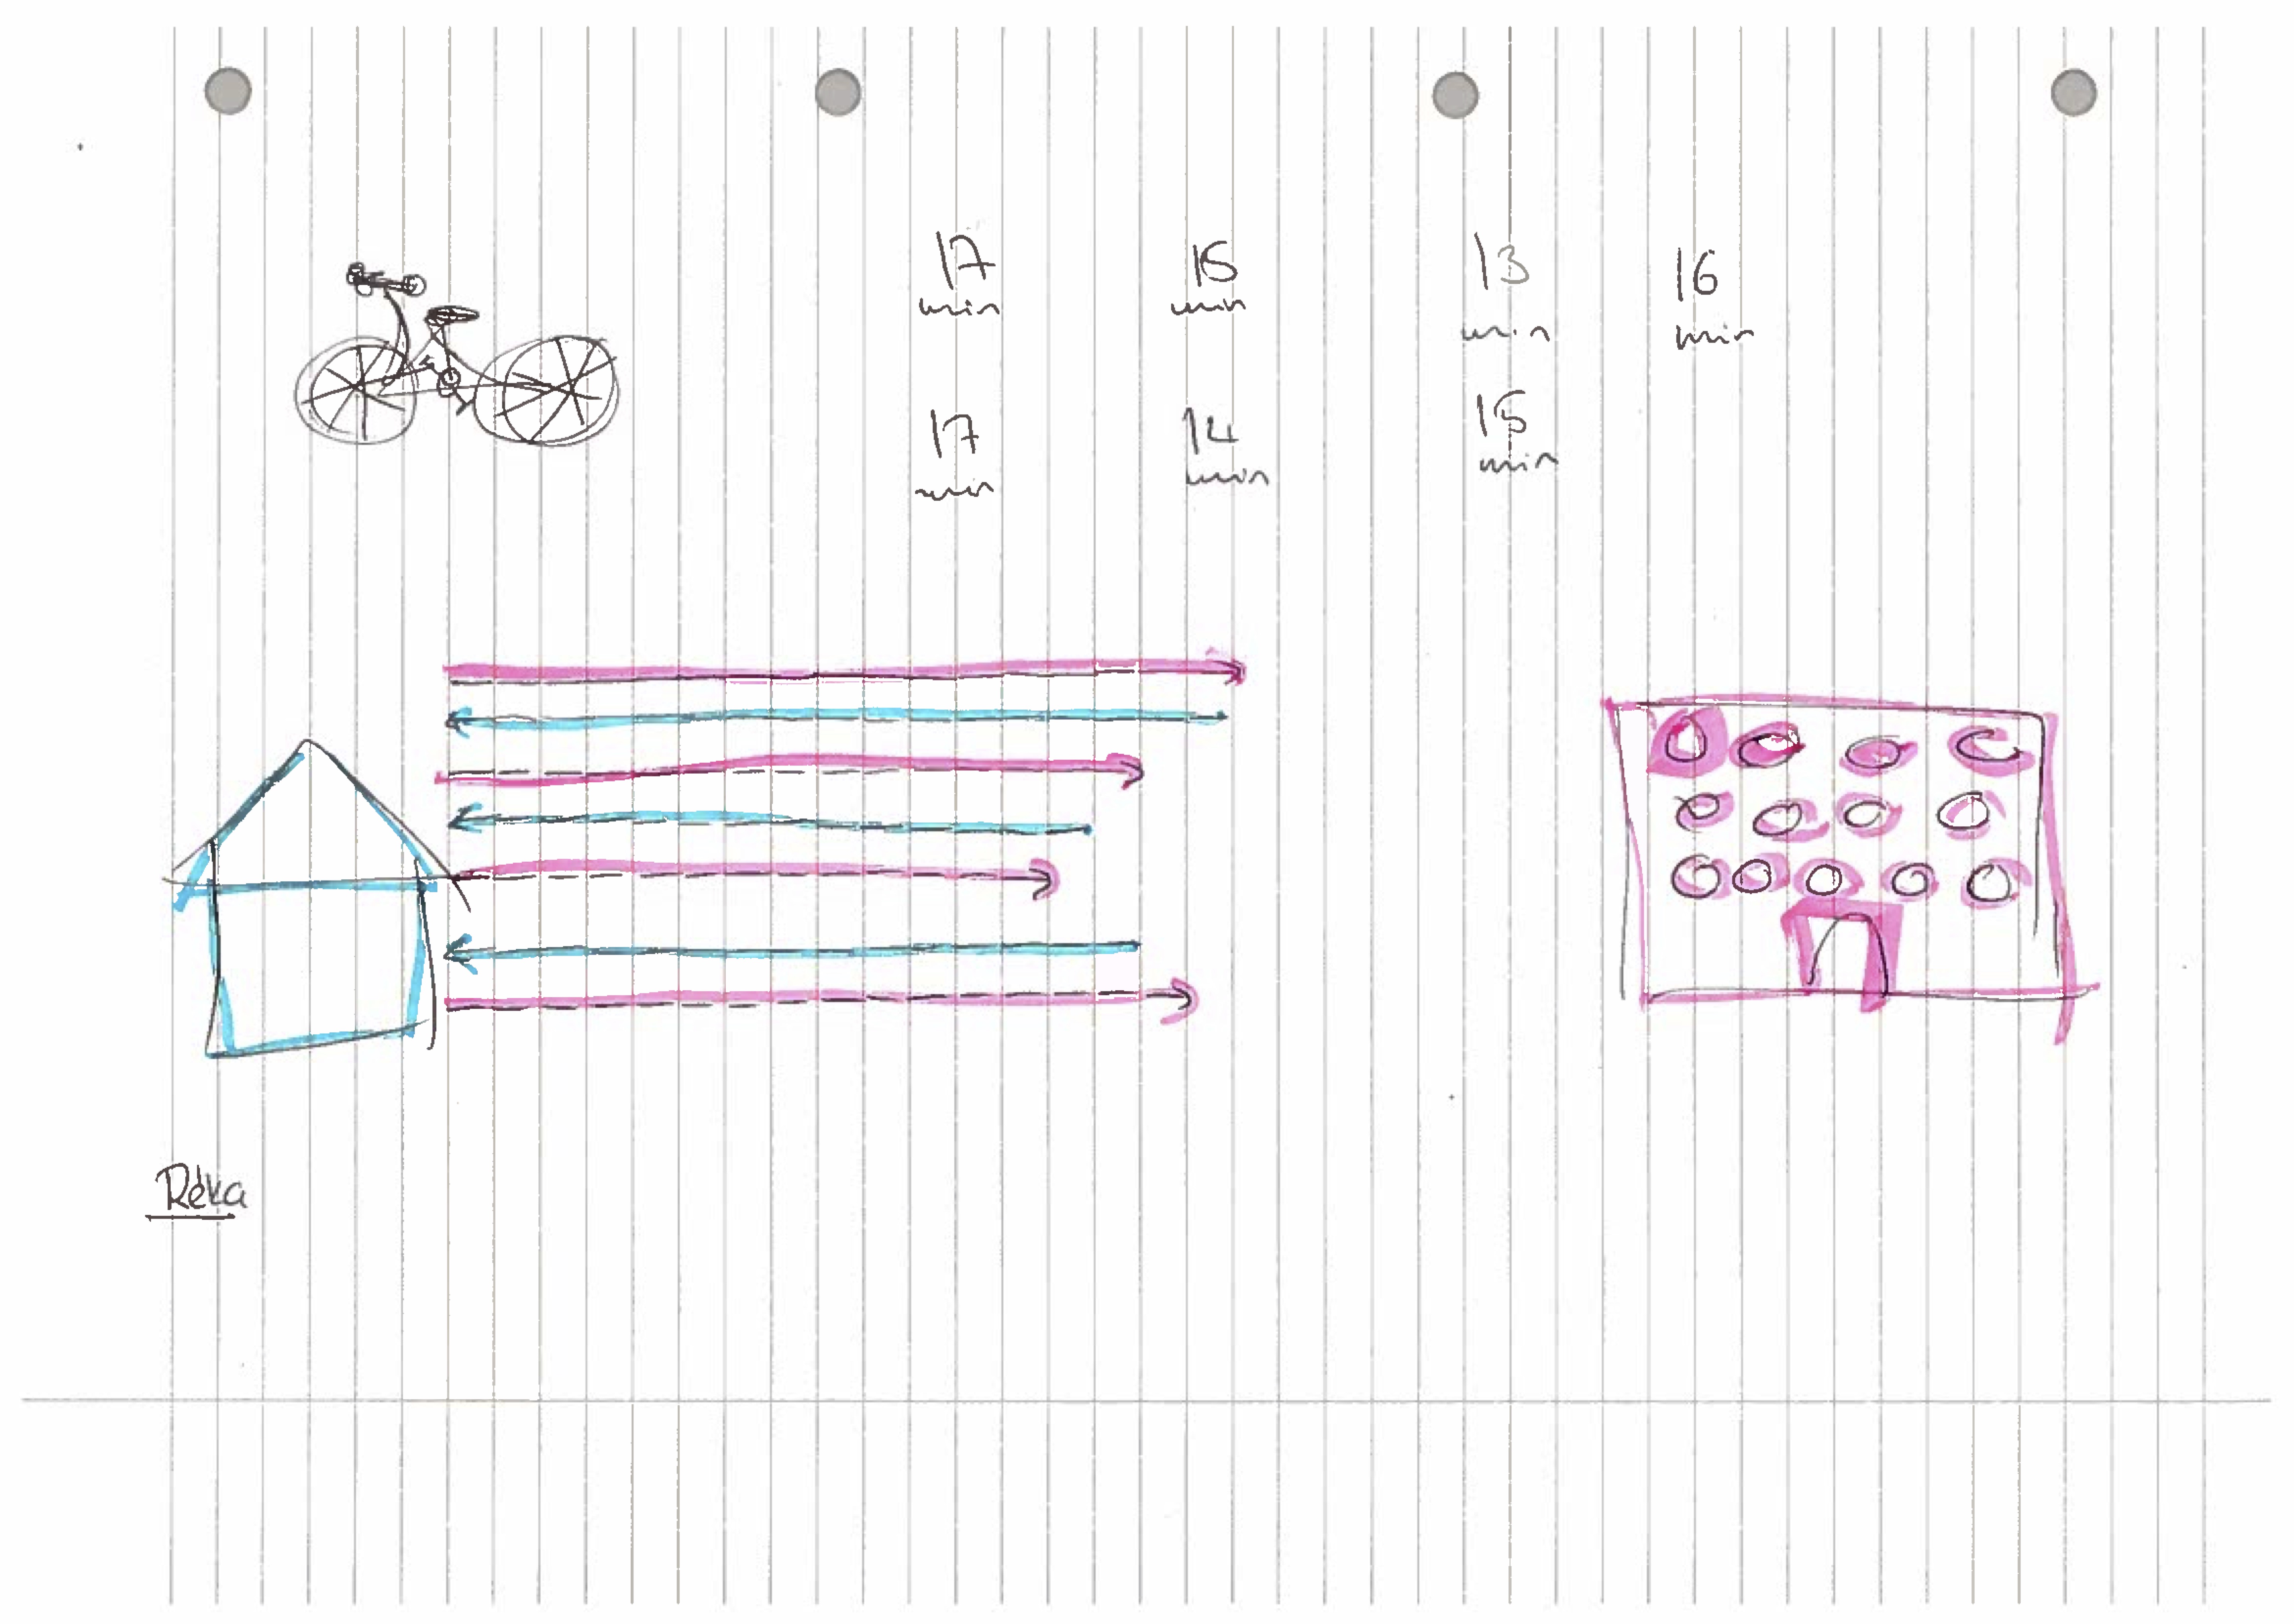 17 min
15 min
13 min
16 min
17 min
14 min
15 min
Réka